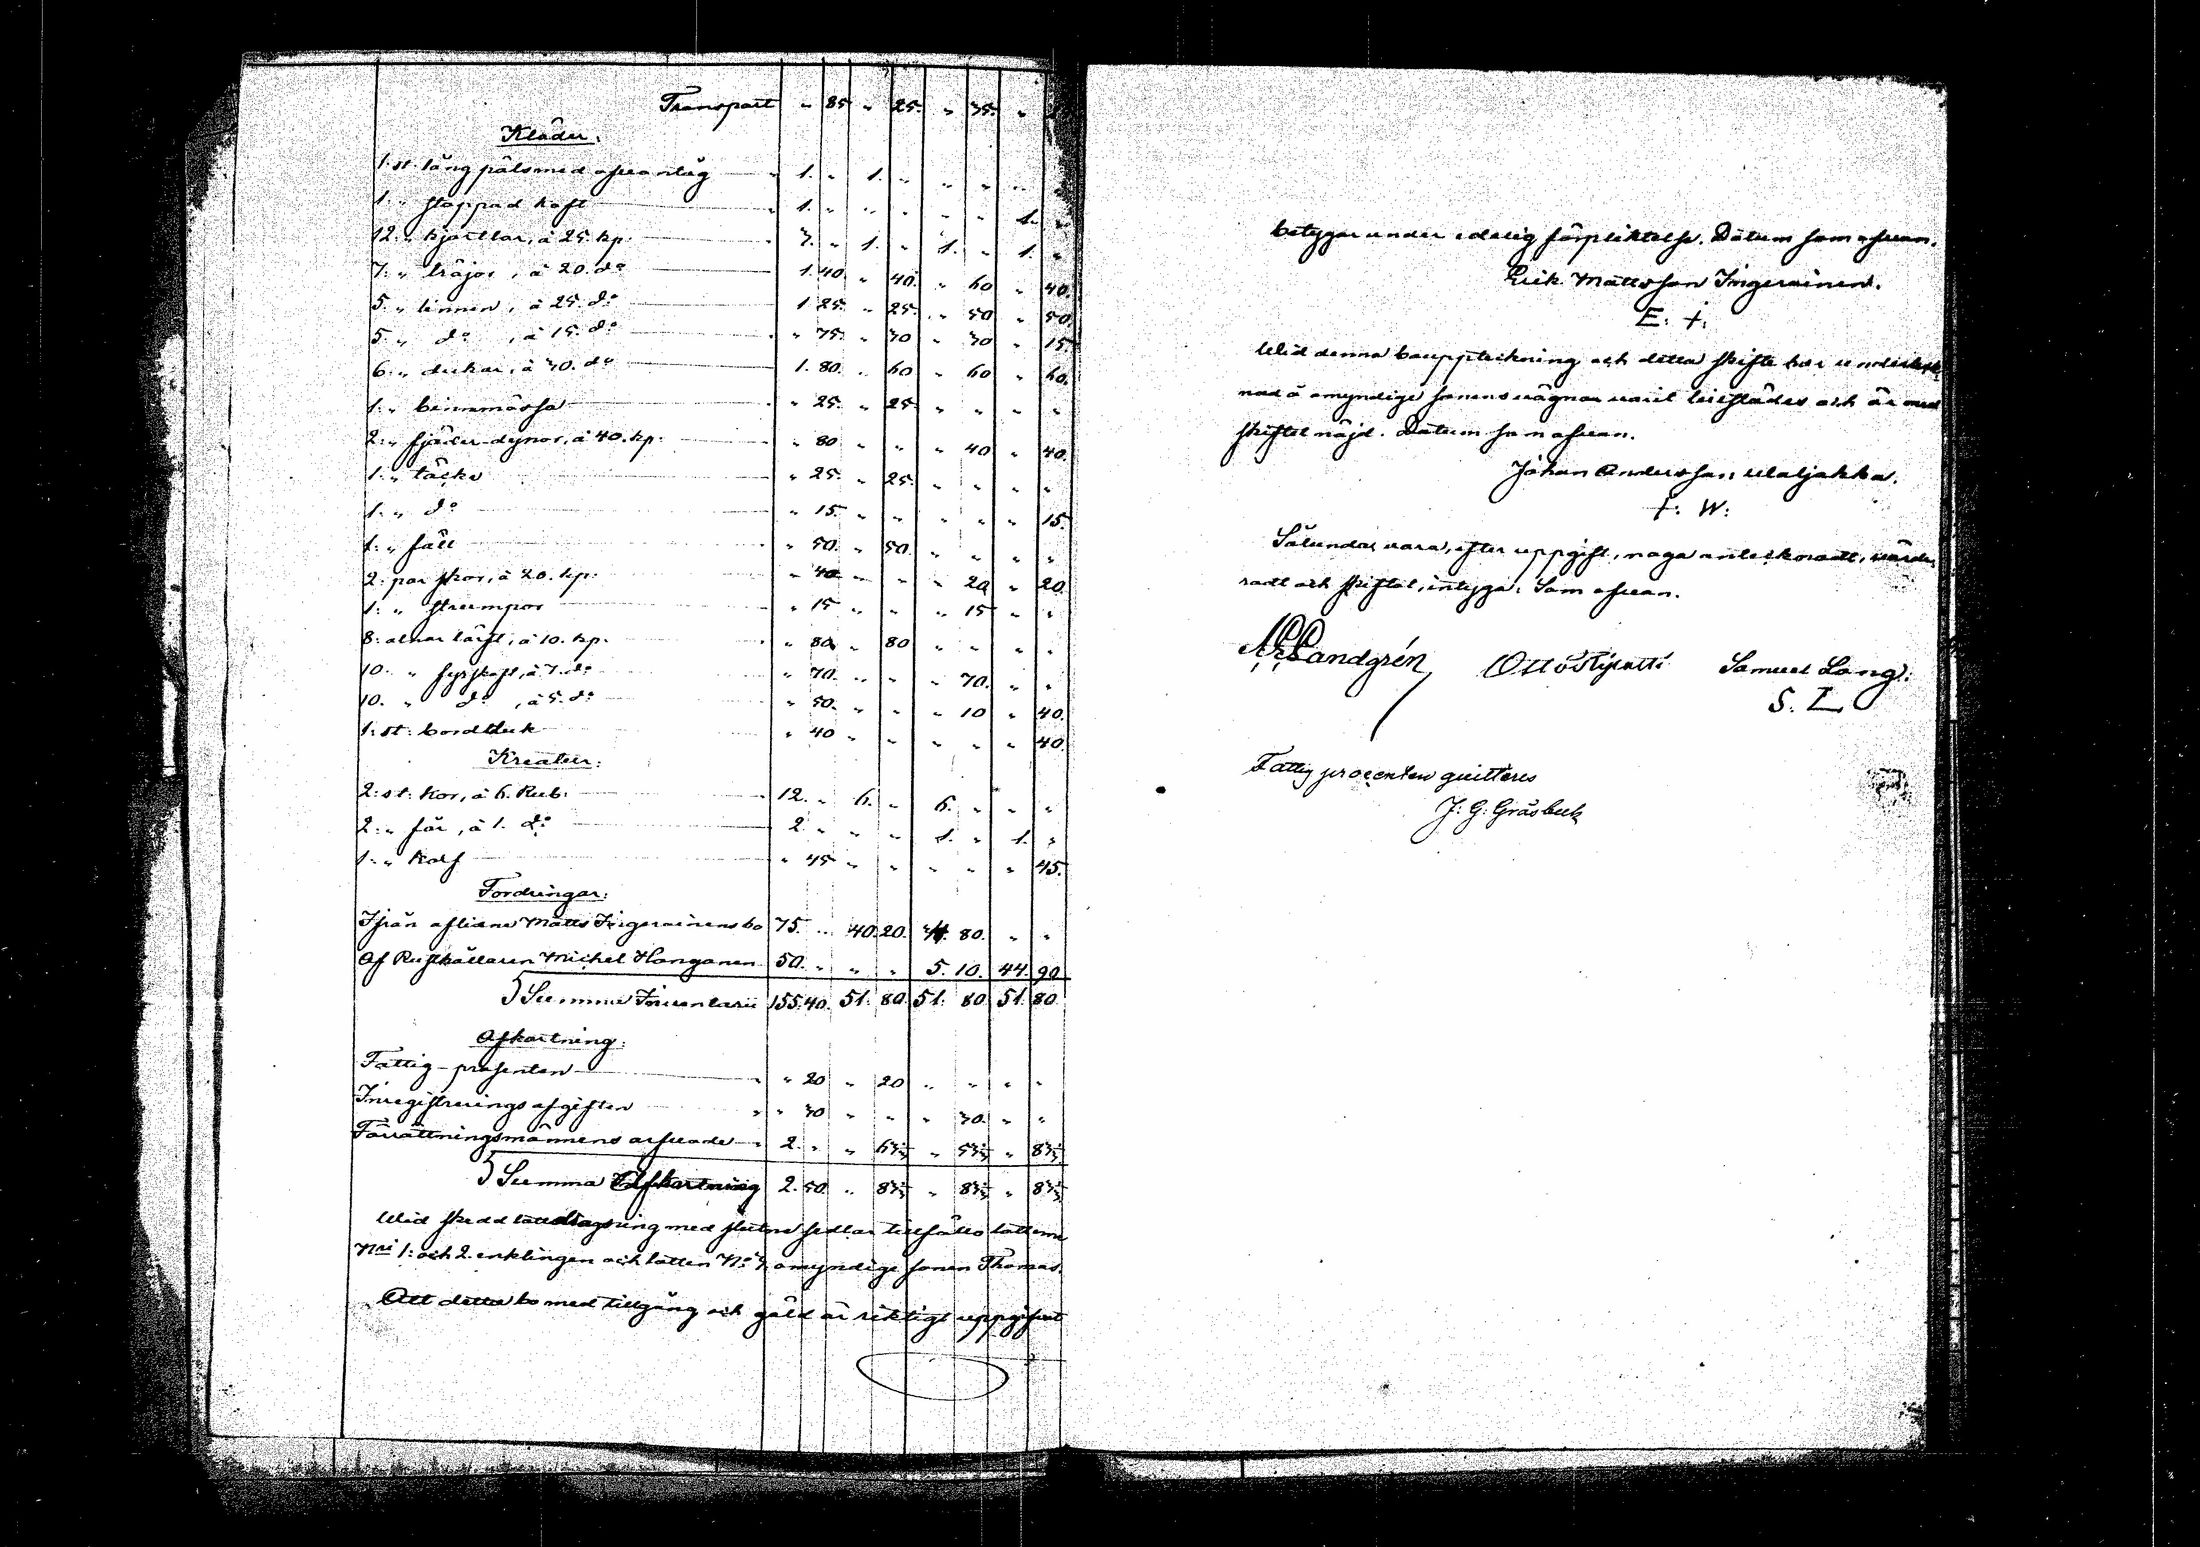 Transport " 85 " 25. " 35. "
Kläder.
1. st. lång päls med ofvantyg " 1. " 1. " " " " "
1. " stoppad koft " 1. " " " " " 1. "
12. " kjortlar, à 25. kp. 3. " 1. " 1. " 1. "
7. " tröjor, à 20. do 1. 40. " 40. " 60 " 40.
5. " linnen, à 25. do 1. 25. " 25. " 50 " 50.
5. " do, à 15. do " 75. " 30 " 30 " 15.
6. " dukar, à 30. do 1. 80. " 60 " 60 " 60.
1. " bindmössa " 25. " 25 " " " "
2. " fjäder-dynor, à 40. kp. " 80 " " " 40 " 40.
1. " täcke " 25. " 25. " " " "
1. " do " 15. " " " " " 15.
1. " fäll " 50. " 50. " " " "
2. par skor, à 20. kp. " 40 " " " 20 " 20.
1. " strumpor " 15 " " " 15 " "
8. alnar lärft, à 10. kp. " 80 " 80 " " " "
10. " fyrskaft, à 7. do " 70. " " " 70. " "
10. " do, à 5. do " 50. " " " 10 " 40.
1. st. bordduk " 40 " " " " " 40.
Kreatur.
2. st. kor, à 6. Rub. 12. " 6. " 6. " " "
2. " får, à 1. do 2. " " " 1. " 1. "
1. " kalf " 45 " " " " " 45.
Fordringar.
Ifrån aflidne Matts Ingerainens bo 75. " 40. 20. 80. " "
Af Rusthållaren Michel Hanganen 50. " " " 5. 10. 44. 90
Summa Inventarii 155. 40. 51. 80. 51. 80. 51. 80.
Afkortning.
Fattig-procenten " 20 " 20 " " " "
Inregistrerings afgiften " 30 " " " 30. " "
Förrättningsmännens arfvode 2. " " 63⅓ " 53⅓ " 83⅓
Summa Afkortning 2. 50. " 83⅓ " 83⅓ " 83⅓
Wid skedd lottdragning med slutne sedlar tillföllo lotterne
Nri 1. och 2. enklingen och lotten No 3 omyndige sonen Thomas.
Att detta bo med tillgång och gäld är riktigt uppgifvet
betygar under edelig förpliktelse. Datum som ofvan.
Erik Mattsson Ingerainen.
E. I.
Wid denna bouppteckning och detta skifte har undertek-
nad å omyndige sonens vägnar varit tillstädes och är med
skiftet nöjd. Datum som ofvan.
Johan Andersson Waljakka.
I. W.
Sålunda vara, efter uppgift, noga antecknadt, värde-
radt och skiftat, intyga; Som ofvan.
Sandgrén Otto Samuel Lang.
S. L
Fattig procenten quitteres
J. G. Gråsbeck